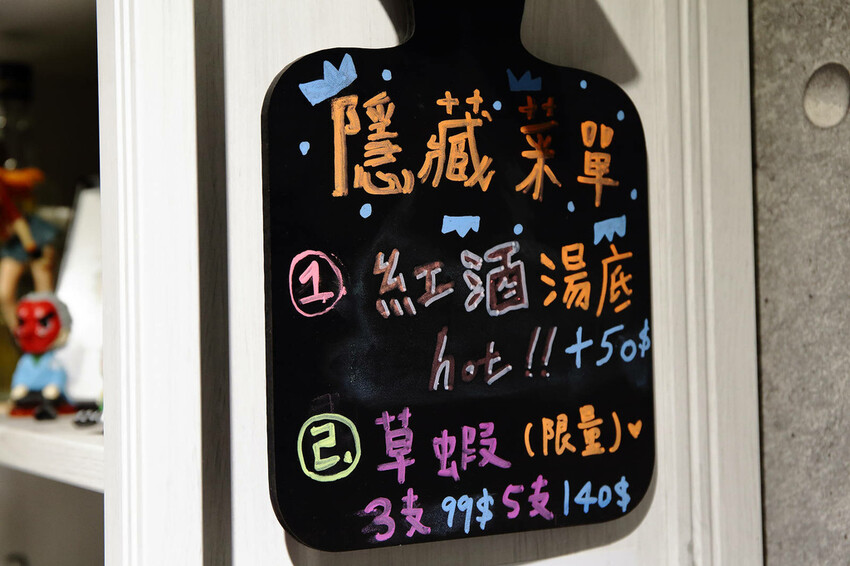 隱藏菜單
① 紅酒湯底
hot!! +50$
②. 草蝦(限量)♥
3支 99$ 5支 140$